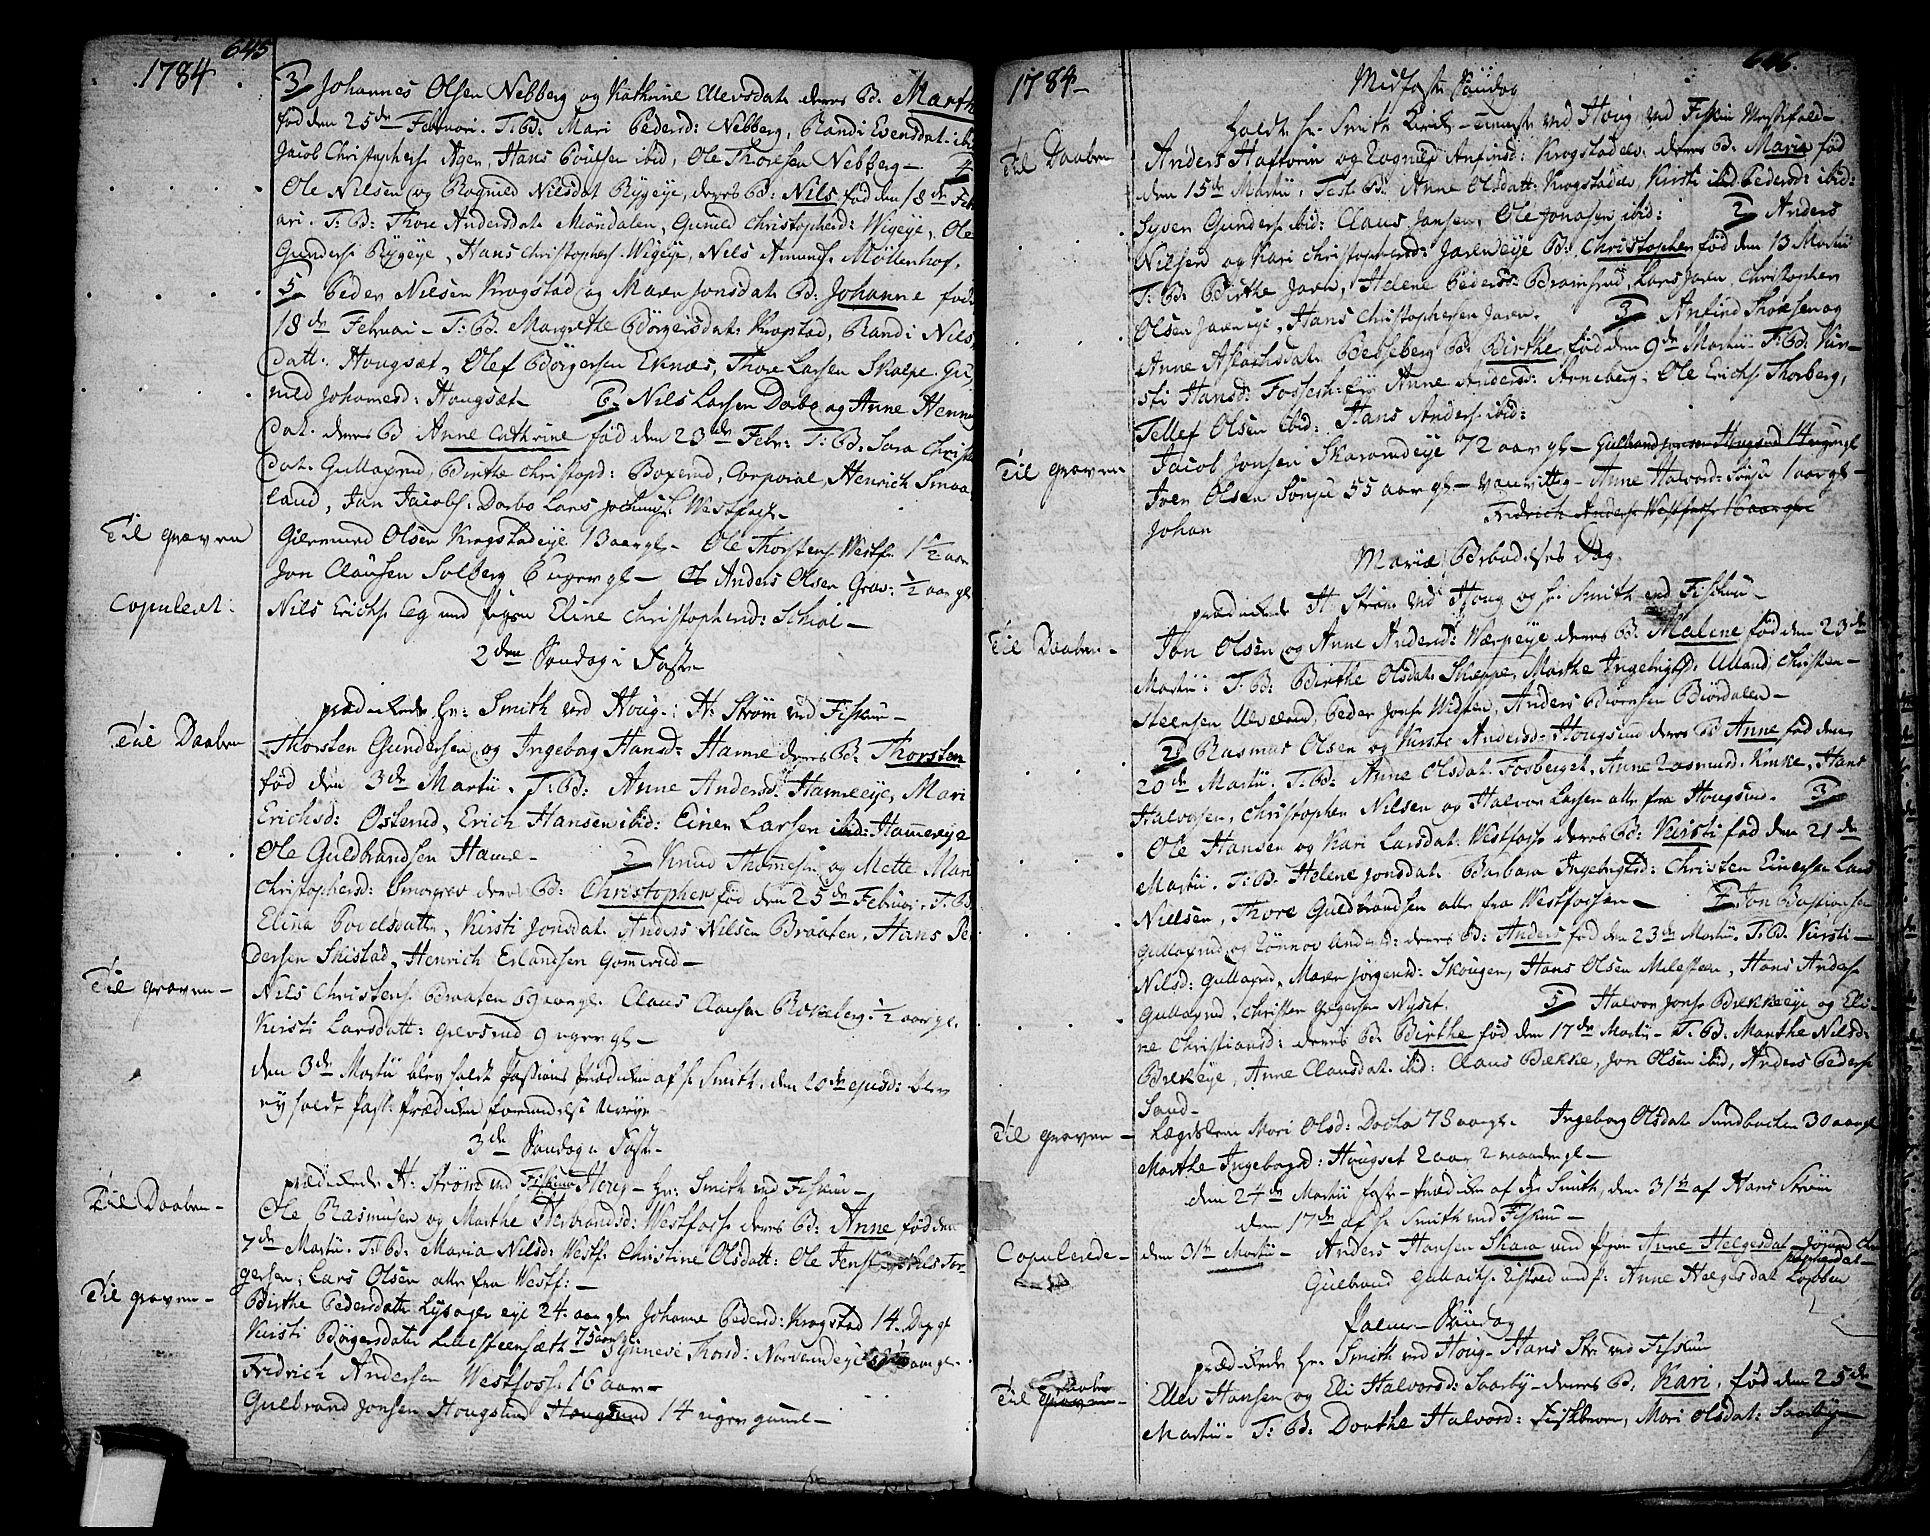 1784
645
3 Johannes Olsen Nebberg og Kathrine Ellevsdat. deres B. Marth
fød den 25de Februari. T: B: Mari Pedersd: Nebberg, Randi Evensdat. ibi
Jacob Christophers. Ager, Hans Povelsen ibid, Ole Thoresen Nebberg — 4
Ole Nilsen og Ragnild Nilsdat Rygeye, deres B: Nils fød den 18de Febr
ari. T: B: Thore Andersdat Mióndalen, Gunild Christophersd: Wigeye, Ole
Gunders. Rygeye, Hans Christophers. Wigeye, Nils Amunds. Möllenhof.
5 Peder Nilsen Krogstad og Maren Jonsdat. B: Johanne fød
18de Februari — T: B. Margrethe Börgersdat: Krogstad, Randi Nils
datt: Hougsæt, Olef Börgersen Eknæs, Thore Larsen Skalpe. Gu
nild Johannesd: Hougsæt — 6 Nils Larsen Dorbo og Anne Henni
Dat. deres B Anne Cathrine fød den 23de Febr: T: B. Sara Christ
Dat. Gullaxrud, Birthe Christopd: Boxerud, Corporal Henrich Smaa
land, Jan Jacobs: Dorbo Lars Jochums. Westfoss —
Til Graven
Giermund Olsen Krogstadeye 13 aar gl — Ole Thorstens. Westfos 1½ aar
Jon Clausen Solberg 6 uger gl — Anders Olsen Grav: ½ aar gl
Copuleret:
Nils Erichs. Eg med Pigen Eline Christophersd: Schiøl —
2den Søndag i Faste
prædikede Hr: Smith ved Houg: H: Strøm ved Fiskum —
Til Daaben
Thorsten Gundersen og Ingeborg Hansd: Hamre deres B: Thorsten
fød den 3de Martii. T: B: Anne Andersd: Hamreeye, Mari
Erichsd: Østerud, Erich Hansen ibid: Einer Larsen ibid: Hamereye
Ole Guldbrandsen Hame — 2 Knud Thommesen og Mette Mari
Christophersd: Smorgrav deres B: Christopher fød den 25de Februari. T: B
Elina Povelsdatt, Kirsti Jonsdat. Anders Nilsen Braaten, Hans Pe
dersen Skistad, Henrich Erlandsen Gomerud —
Til Graven —
Nils Christens. Braaten 69 aar gl. Claus Clausen Rokeberg ½ aar gl.
Kirsti Larsdatt: Grevsrud 9 uger gl —
den 3de Martii blev holdt Passions Prædiken af Hr Smith. den 10de ejusd: blev
ey holdt Pass: Prædiken formedelst Uveyr —
3de Søndag i Faste —
prædikede H: Strøm ved Fiskum Houg — Hr: Smith ved Fiskum —
Til Daaben —
Ole Rasmusen og Marthe Herbrandsd: Westfoss. deres B: Anne fød den
7de Martii. T: B: Maria Nilsd: Westf: Christine Olsdatt: Ole Jens Nils Tor
gersen, Lars Olsen alle fra Westf: —
Til Graven —
Birthe Pedersdatt. Lysager eye 24. aar gl. Johanne Pedersd: Krogstad 14. Dage gl
Kirsti Börgersdatt. Lillesteensæth 75 aar gl. Synneve Thorsd: Norvandeye aar gl.
Fridrich Andersen Westfoss. 16 aar —
Gulbrand Jonsen Hougsund Hougsund 14 uger gamel —
1784 —
646.
Midfaste Søndag
Holdt Hr Smith Kirke-tieneste ved Houg, ved Fiskum Messefald —
Til Daaben
Anders Haftorn og Ragnild Anfinsd: Krogstadelv. deres B. Maria fød
den 15de Martii. Test. B: Anne Olsdatt: Krogstadelv, Kirsti ibid Pedersd: ibid:
Syver Gunders. ibid: Claus Jansen, Ole Jonasen ibid: 2 Anders
Nilsen og Kari Christophersd: Jareneye B: Christopher fød den 13 Martii
T: B: Birthe Jaren, Helene Pedersd: Braarud, Lars Jaren, Christopher
Olsen Jareneye, Hans Christophersen Jaren. 3 Anfind Thoresen og
Anne Aslachsdat. Bebseberg B: Birthe, fød den 9de Martii T: B: Kir—
sti Hansd: Fossesh: eye Anne Andersd: Arneberg. Ole Erichs. Thorberg,
Tellef Olsen ibid: Hans Anders. ibid:
Til Graven
Jacob Jonsen Skaramdeye 72 aar gl — Gulbrand Jonsen Hougsund 14 uger gl
Iver Olsen Sörgu 55 aar gl — vanvittig — Anne Halvord: Sörgu 1 aar gl —
Johan Fridrich Anders. Westfoss. 16 aar gl
Mariæ Bebudelses Dag
prædikede H Strøm ved Houg og Hr. Smith ved Fiskum —
Til Daaben —
Jon Olsen og Anne Andersd: Wærpeye deres B: Malene fød den 23de
Martii: T: B: Birthe Olsdat. Skieppe, Marthe Ingebrigtsd: Ulland Christen—
Steensen Ulveland, Peder Jons. Widsten, Anders Biörnsen Biördalen —
2 Rasmus Olsen og Kirsti Andersd: Hougsund deres B Anne fød den
20de Martii. T: B: Anne Olsdat. Fosberget, Anne Rasmusd. Krike, Hans
Halvorsen, Christopher Nilsen og Halvor Larsen alle fra Hougsund. 3
Ole Hansen og Kari Larsdat. Westfoss. deres B: Kirsti fød den 21de
Martii. T: B. Helene Jonsdat. Barbara Ingebrigtsd: Christen Einersen Lars
Nielsen, Thore Guldbrandsen alle fra Westfossen — 4 Jon Bastiansen
Gullaxrud og Rönnov Andersd: deres B: Anders fød den 23de Martii. T: B: Kirsti —
Nilsd: Gullaxrud, Maren Jörgensd: Skougen, Hans Olsen Milesteen, Hans Anders.
Gullaxrud, Christen Gregersen Nyset. 5 Halvor Jons. Bekkeeye og Eli—
ne Christiansd: deres B. Birthe fød den 17de Martii — T: B: Marthe Nilsd:
Bekkeye, Anne Clausdat. ibid: Claus Bekke, Jon Olsen ibid, Anders Peders.
Sand —
Til Graven —
Lægdslem Mari Olsd: Docka 78 aar gl. Ingeborg Olsdat. Sundbacken 30 aar gl
Marthe Ingeborgsd: Hougset 2 aar 2 maaneder gl —
den 24de Martii faste-Prædiken af Hr Smith, den 31te af Hans Strøm
den 17de af Hr Smith ved Fiskum —
Copulerede —
den 31te Martii — Anders Hansen Skara med Pigen Anne Helgesdat
Gulbrand Gullichs. Eistad med P: Anne Helgesdat Lobben
Palme-Søndag
prædikede Hr: Smith ved Houg — Hans Str: ved Fiskum
Til Graven — Daaben
Ellev Hansen og Eli Halvorsd: Saasby — deres B: Kari, fød den 25de
Martii — T: B: Dorthe Halvord: Fiskbeen, Mari Olsdat: Saasby —